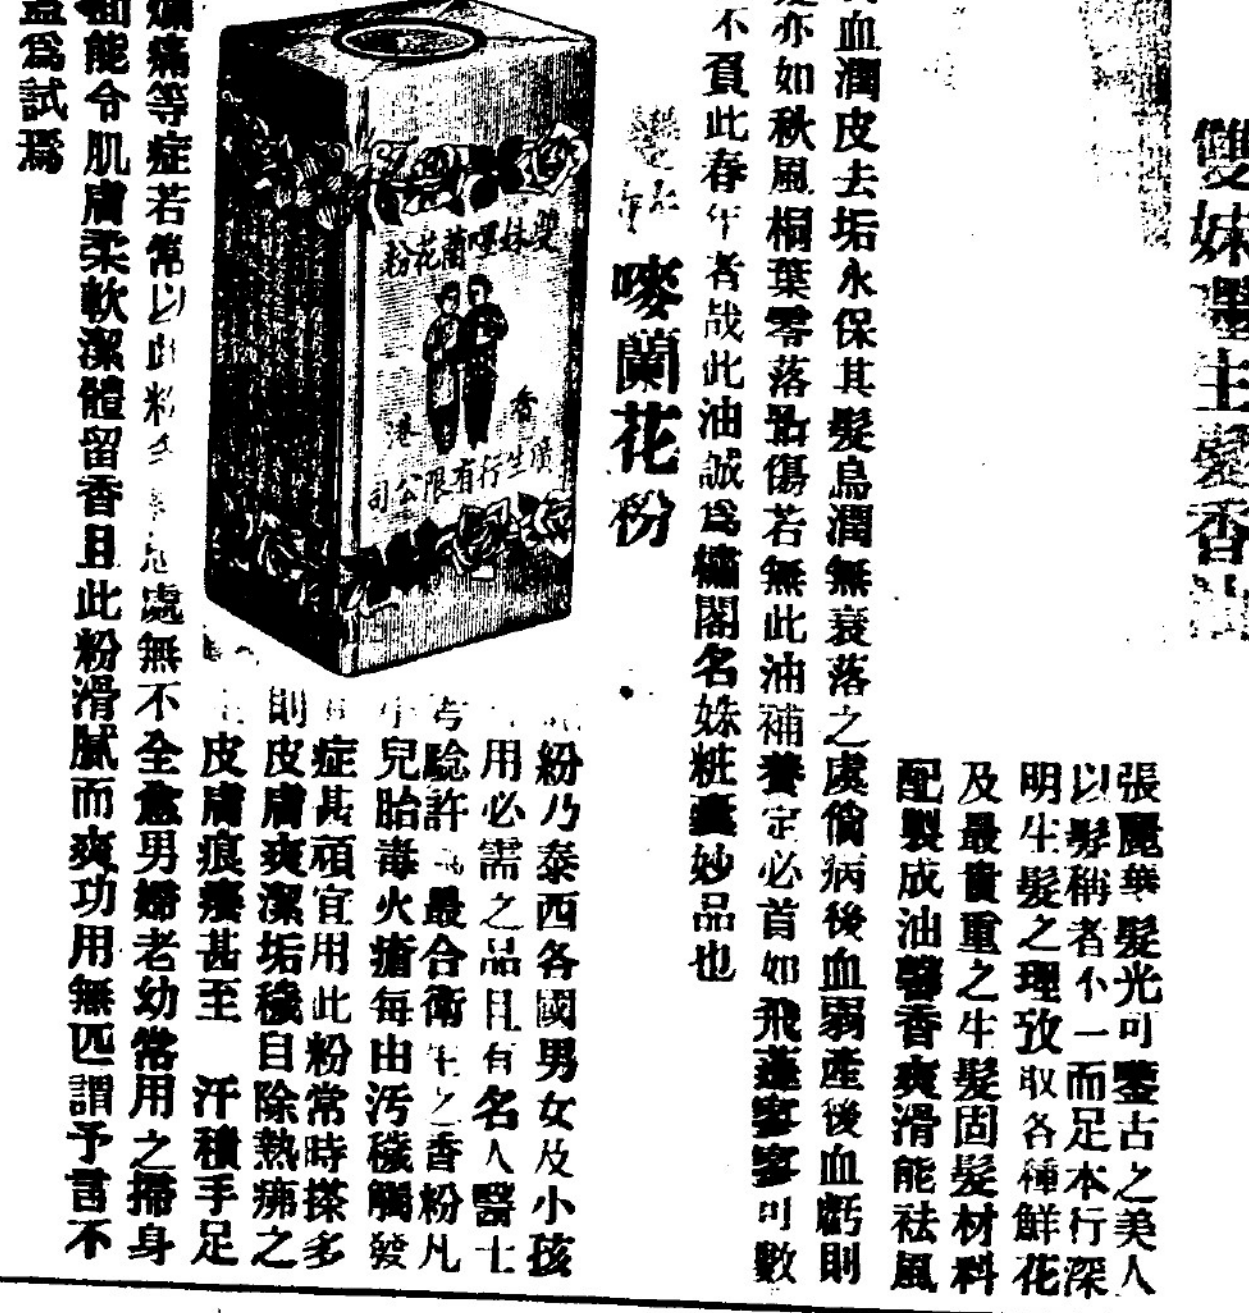 雙妹嚜生髮香
張麗華髮光可鑒古之美人
以髮稱者不一而足本行深
明生髮之理攷取各種鮮花
及最貴重之生髮固髮材料
配製成油馨香爽滑能袪風
血潤皮去垢永保其髮烏潤無衰落之虞倘病後血弱產後血虧則
亦如秋風桐葉零落點傷若無此油補養定必首如飛蓬寥寥可數
不負此春年者哉此油誠為繡閣名姝粧臺妙品也
嘜蘭花粉
雙妹嘜蘭花粉
香港
廣生行有限公司
粉乃泰西各國男女及小孩
用必需之品且有名人醫士
考驗許為最合衛生之香粉凡
小兒胎毒火瘡每由污穢觸發
症甚頑宜用此粉常時搽多
則皮膚爽潔垢穢自除熱痱之
皮膚痕癢甚至 汗積手足
爛痛等症若常以此粉 處無不全愈男婦老幼常用之搽身
面能令肌膚柔軟潔體留香且此粉滑膩而爽功用無匹謂予言不
盍為試焉